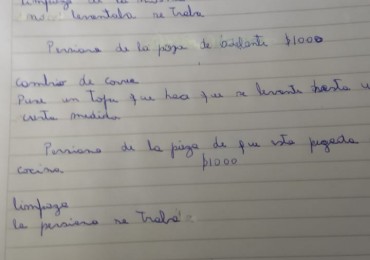 limpieza de la
no levantaba se traba
Persiana de la pieza de adelante $1000
cambio de correa
Puse un tope que hace que se levante hasta
cierta medida
Persiana de la pieza de que esta pegada
cocina $1000
limpieza
la persiana se Traba